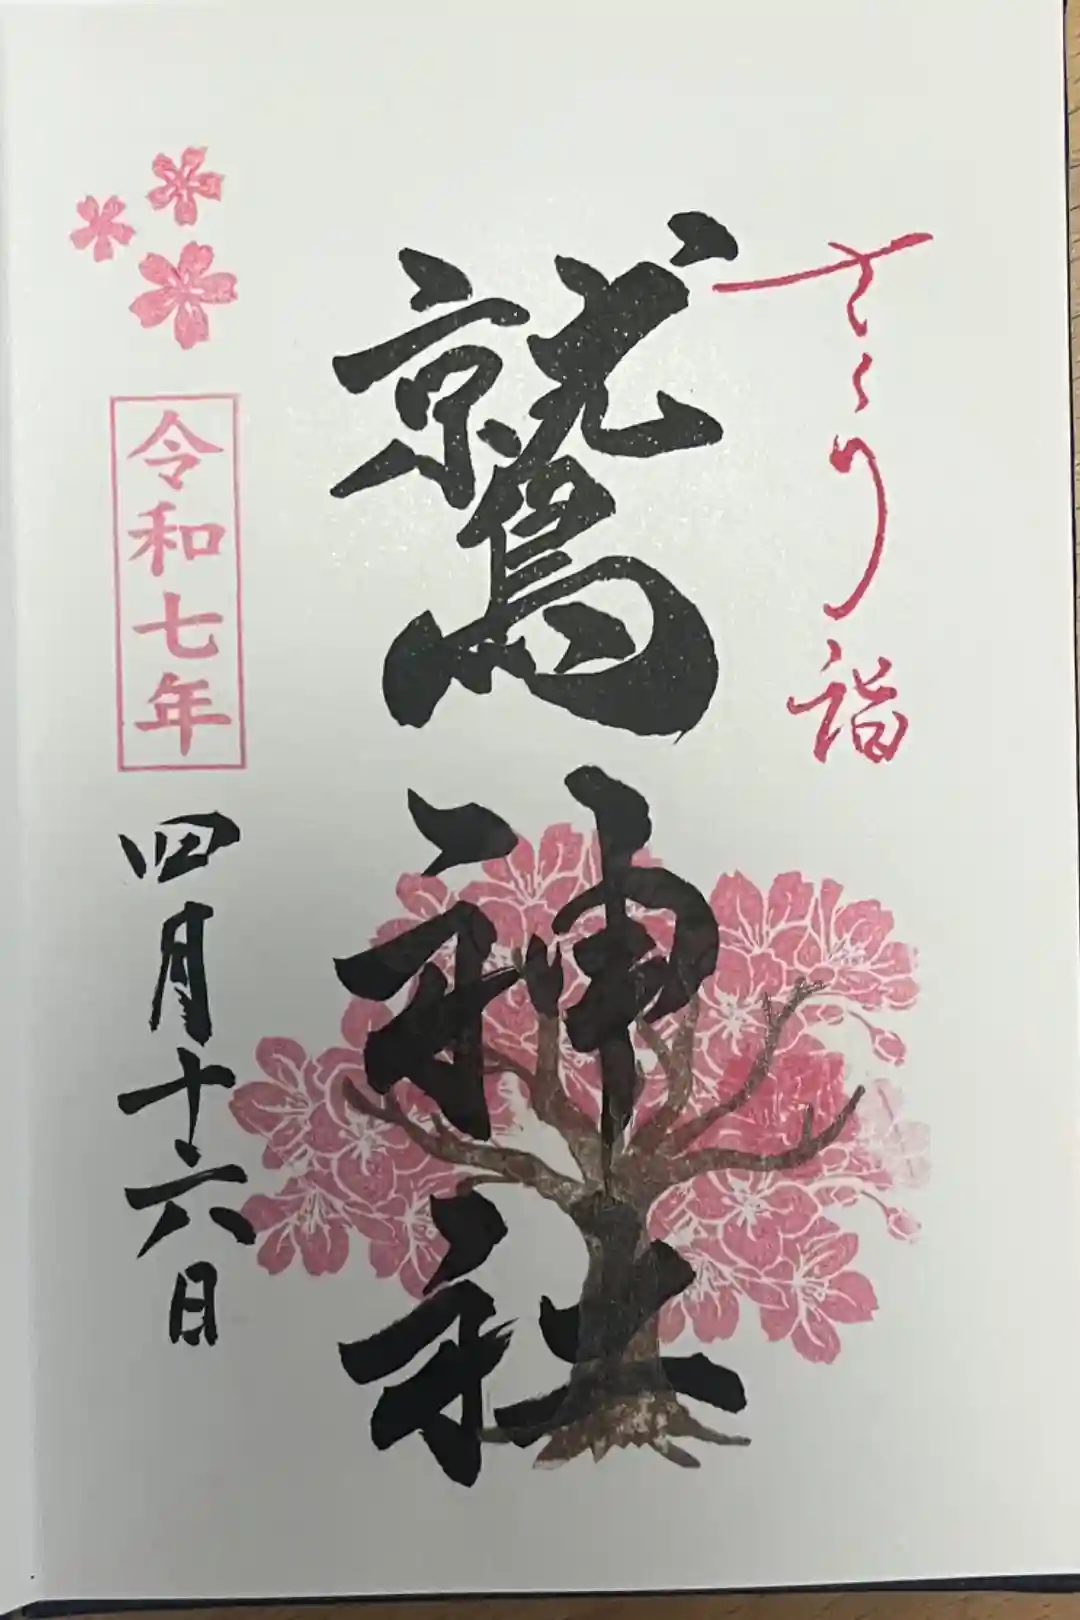 さくら詣
鷲神社
令和七年
四月十六日